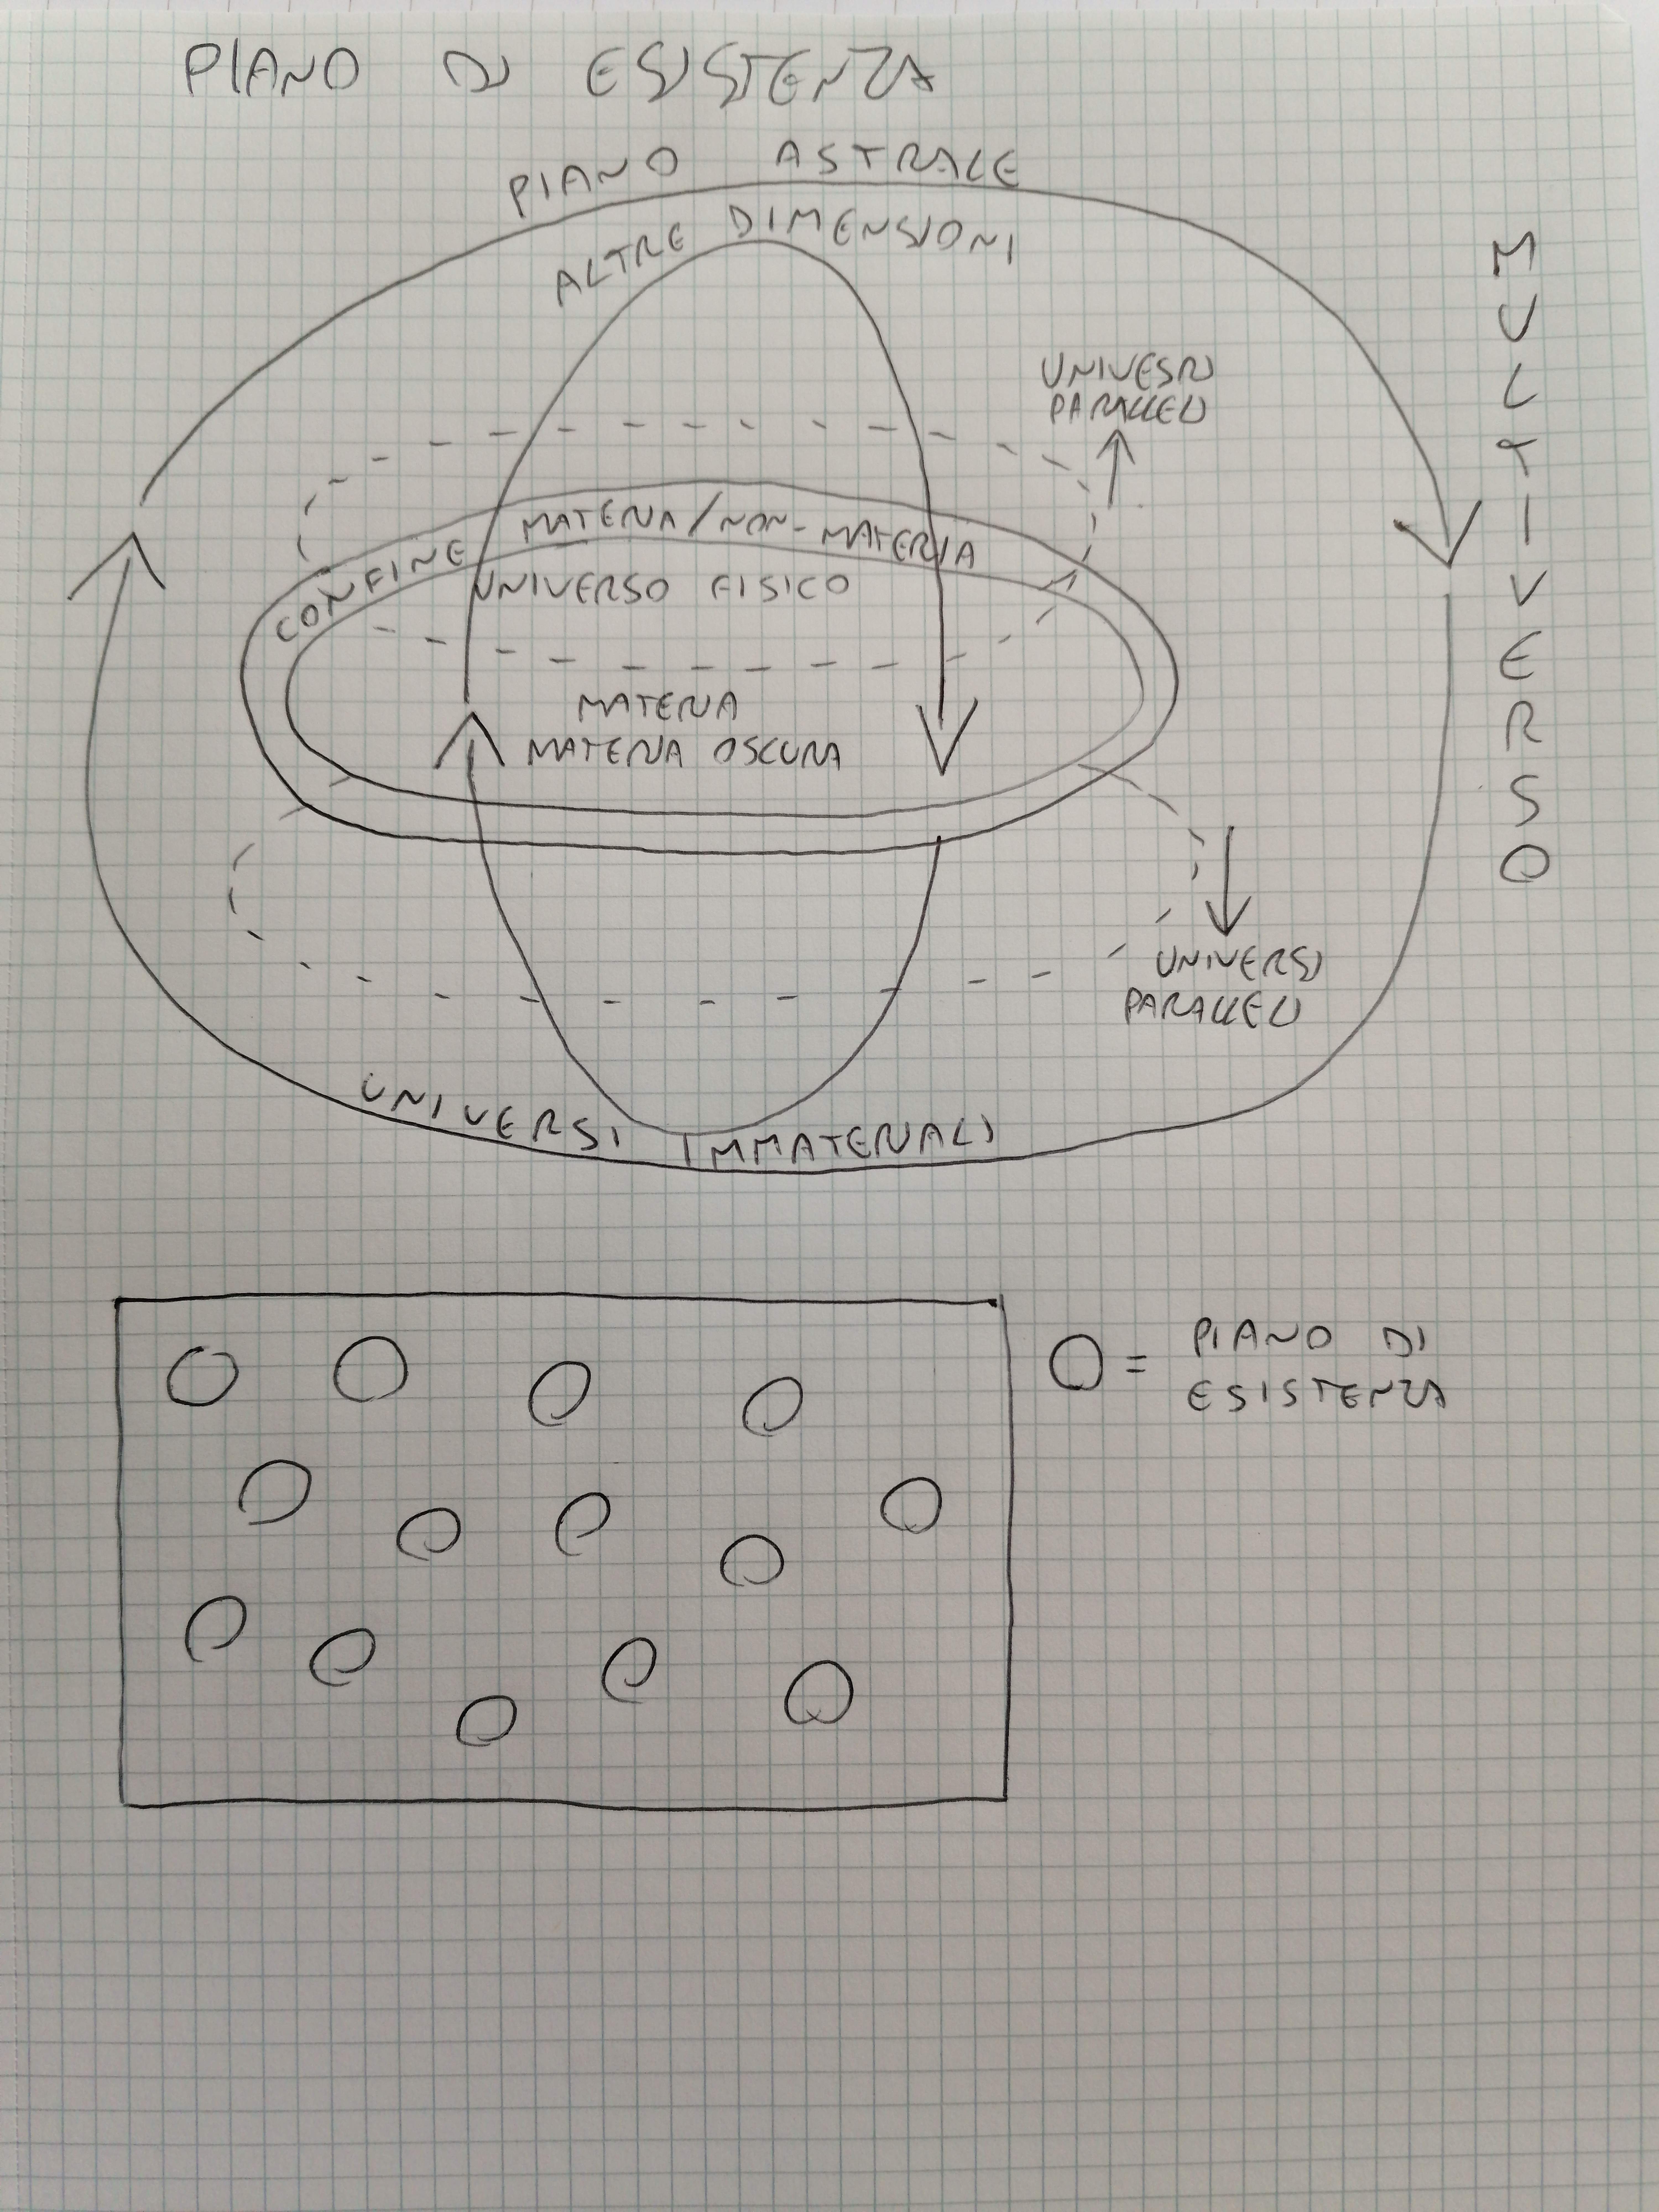 PIANO DI ESISTENZA
PIANO ASTRALE
ALTRE DIMENSIONI
MULTIVERSO
UNIVESRI
PARALLELI
CONFINE MATERIA/NON-MATERIA
UNIVERSO FISICO
MATERIA
MATERIA OSCURA
UNIVERSI
PARALLELI
UNIVERSI IMMATERIALI
O = PIANO DI
ESISTENZA